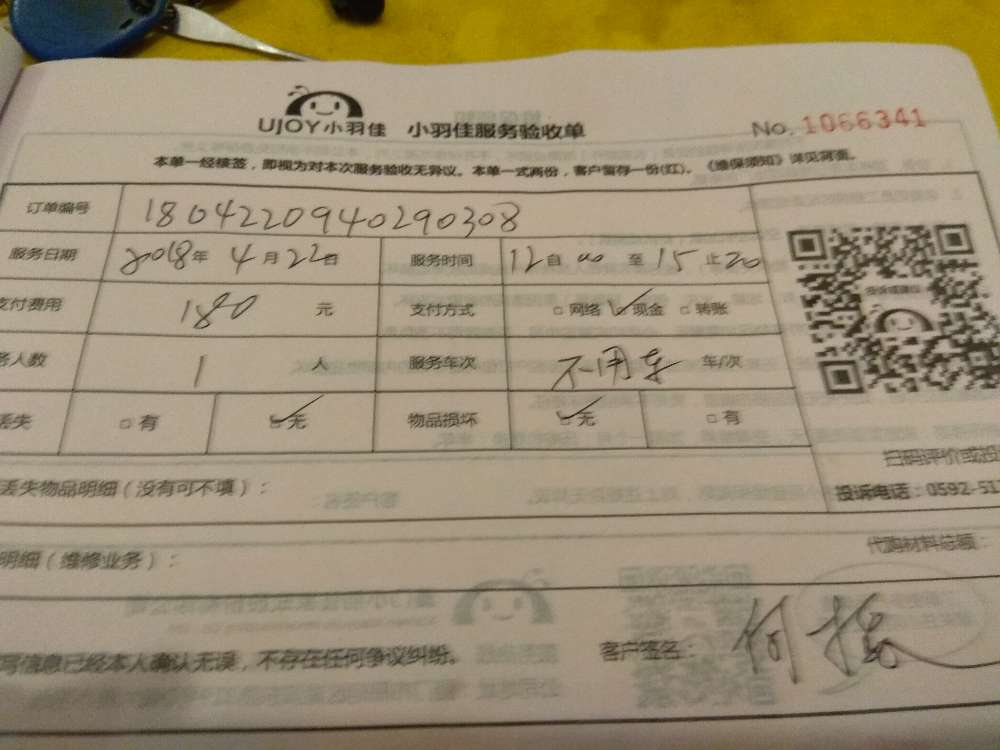 UJOY小羽佳 小羽佳服务验收单 No. 1066341
本单一经核签，即视为对本次服务验收无异议。本单一式两份，客户留存一份(红)。《维保须知》详见背面。
订单编号 1804220940290308
服务日期 2018年 4月22日 服务时间 12自00至15止20
支付费用 180 元 支付方式 □网络 ☑现金 □转账
务人数 1 人 服务车次 不用车 车/次
丢失 □有 ☑无 物品损坏 ☑无 □有
投诉或建议
扫码评价或投
丢失物品明细（没有可不填）：
投诉电话：0592-51
明细（维修业务）： 代购材料总额：
写信息已经本人确认无误，不存在任何争议纠纷。 客户签名： 何